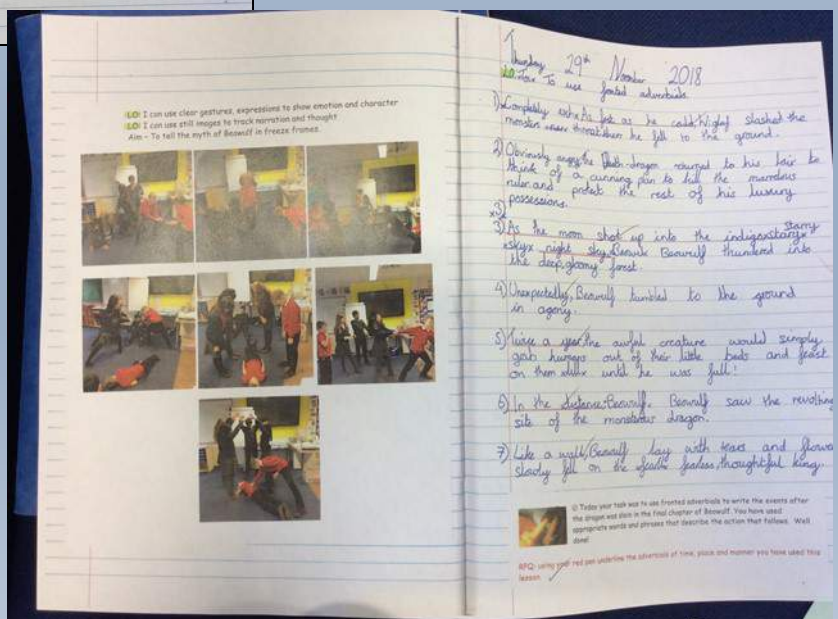 LO: I can use clear gestures, expressions to show emotion and character
LO: I can use still images to track narration and thought
Aim - To tell the myth of Beowulf in freeze frames.
Thursday 29th November 2018
LO: To use fronted adverbials.
1) Completely As fast as he could Wiglaf slashed the
monsters throat then he fell to the ground.
2) Obviously angry, the dragon returned to his lair to
think of a cunning pan to kill the marvelous
ruler and protect the rest of his luxury
possessions.
3)
3) As the moon shot up into the indigo starry
sky night sky, Beowulf thundered into
the deep, gloomy forest.
4) Unexpectedly, Beowulf tumbled to the ground
in agony.
5) Twice a year, the awful creature would simply
grab humans out of their little beds and feast
on them until he was full!
6) In the distance, Beowulf saw the revolting
site of the monstrous dragon.
7) Like a wall, Beowulf lay with tears and flowers
slowly fell on the fearless, thoughtful king.
Today your task was to use fronted adverbials to write the events after
the dragon was slain in the final chapter of Beowulf. You have used
appropriate words and phrases that describe the action that follows. Well
done!
RFQ- using your red pen underline the adverbials of time, place and manner you have used this
lesson.